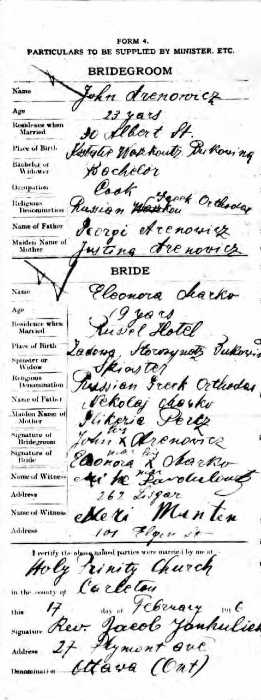 FORM 4.
PARTICULARS TO BE SUPPLIED BY MINISTER, ETC.
BRIDEGROOM
Name John Arenowicz
Age 23 years
Residence when Married Albert St.
Place of Birth Bukowina
Bachelor or Widower Bachelor
Occupation Cook
Religious Denomination Russian Greek Orthodox
Name of Father Georgi Arenowicz
Maiden Name of Mother Justina Arenowicz
BRIDE
Name Eleonora Marko
Age 19 years
Residence when Married Russel Hotel
Place of Birth Zadowa, Storozynetz Bukowina
Spinster or Widow Spinster
Religious Denomination Russian Greek Orthodox
Name of Father Nikolaj Marko
Maiden Name of Mother
Signature of Bridegroom John X Arenowicz
Signature of Bride Eleonora X Marko
Name of Witness Mike
Address 267 Lisgar
Name of Witness
Address 101
I certify the above named parties were married by me at
Holy Trinity Church
in the county of Carleton
this 17 day of February 191 6
Signature Rev. Jacob
Address 27 Plymont ave
Denomination Ottawa (Ont)